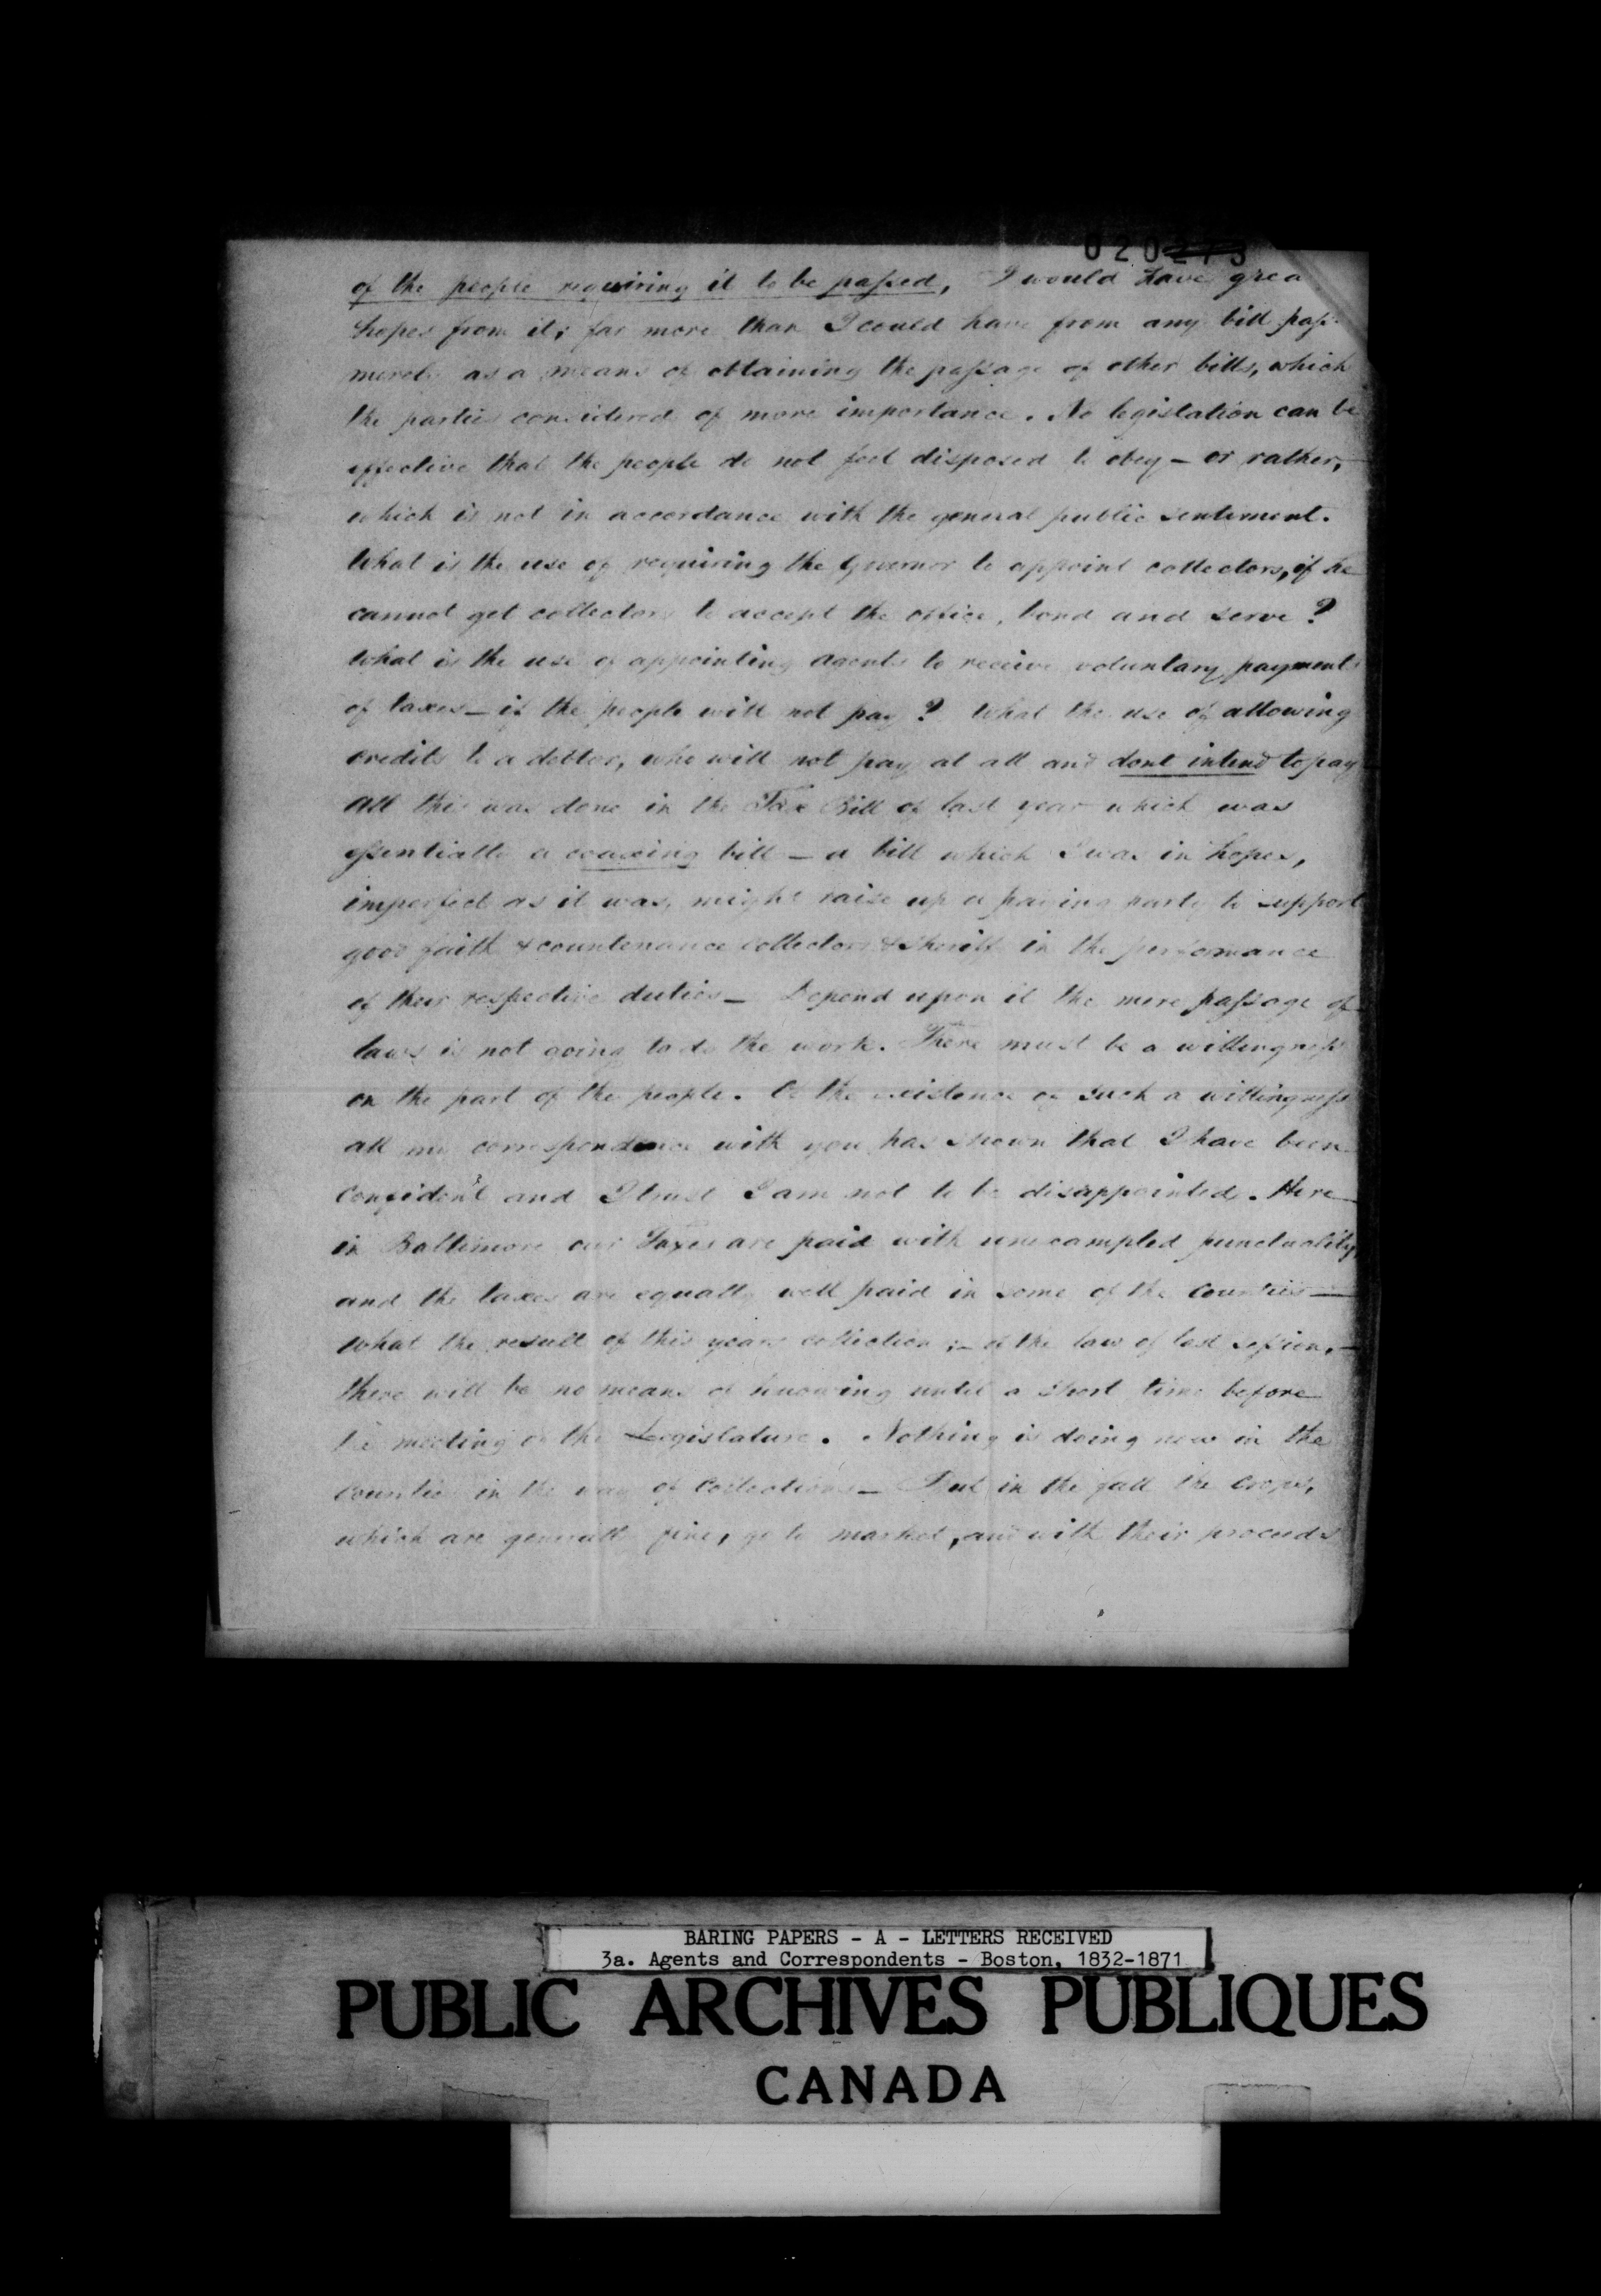 020273
of the people requiring it to be passed, I would have grea
hopes from it; far more than I could have from any bill pass
merely as a means of obtaining the passage of other bills, which
the parties considered of more importance. No legislation can be
effective that the people do not feel disposed to obey – or rather,
which is not in accordance with the general public sentiment.
What is the use of requiring the Governor to appoint collectors, if he
cannot get collectors to accept the office, bond and serve?
What is the use of appointing agents to receive voluntary payments
of taxes – if the people will not pay? What the use of allowing
credits to a debtor, who will not pay at all and dont intend to pay
All this was done in the Tax Bill of last year which was
essentially a coaxing bill – a bill which I was in hopes,
imperfect as it was, might raise up a paying party to support
good faith & countenance collectors & sheriffs in the performance
of their respective duties – Depend upon it the mere passage of
laws is not going to do the work. There must be a willingness
on the part of the people. Of the existence of such a willingness
all my correspondence with you has shown that I have been
confident and I trust I am not to be disappointed. Here
in Baltimore our Taxes are paid with unexampled punctuality,
and the taxes are equally well paid in some of the Counties –
What the result of this years collection; – of the law of last session, –
there will be no means of knowing until a short time before
the meeting of the Legislature. Nothing is doing now in the
Counties in the way of Collections – But in the fall the crops,
which are generally fine, go to market, and with their proceeds
BARING PAPERS - A - LETTERS RECEIVED
3a. Agents and Correspondents - Boston, 1832-1871
PUBLIC ARCHIVES PUBLIQUES
CANADA